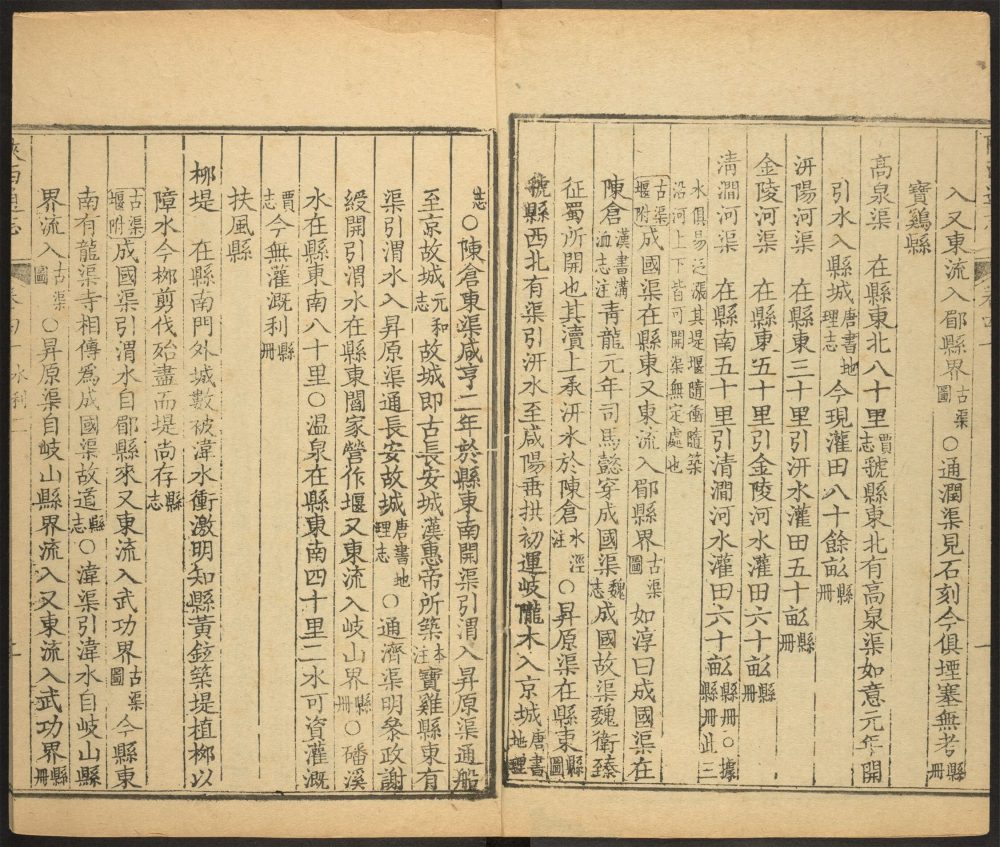 入又東流入郿縣界古渠圖○通潤渠見石刻今俱堙塞無考縣冊
寶鷄縣
高泉渠 在縣東北八十里賈志虢縣東北有高泉渠如意元年開
引水入縣城唐書地理志今現灌田八十餘畝縣冊
汧陽河渠 在縣東三十里引汧水灌田五十畝縣冊
金陵河渠 在縣東五十里引金陵河水灌田六十畝縣冊
清澗河渠 在縣南五十里引清澗河水灌田六十畝縣冊○據縣冊此三
水俱易泛漲其堤堰隨衝隨築沿河上下皆可開渠無定處也
古渠堰附成國渠在縣東又東流入郿縣界古渠圖如淳曰成國渠在
陳倉漢書溝洫志注靑龍元年司馬懿穿成國渠魏志成國故渠魏衛臻
征蜀所開也其瀆上承汧水於陳倉水經注○昇原渠在縣東縣圖
虢縣西北有渠引汧水至咸陽垂拱初運岐隴木入京城唐書地理
志○陳倉東渠咸亨二年於縣東南開渠引渭入昇原渠通船
至京故城元和志故城即古長安城漢惠帝所築本注寶雞縣東有
渠引渭水入昇原渠通長安故城唐書地理志○通濟渠明叅政謝
綬開引渭水在縣東閻家營作堰又東流入岐山界縣冊○磻溪
水在縣東南八十里○温泉在縣東南四十里二水可資灌溉
賈志今無灌溉利縣冊
扶風縣
栁堤 在縣南門外城數被湋水衝激明知縣黃鉉築堤植栁以
障水今栁剪伐殆盡而堤尚存縣志
古渠堰附成國渠引渭水自郿縣來又東流入武功界古渠圖今縣東
南有龍渠寺相傳爲成國渠故道縣志○湋渠引湋水自岐山縣
界流入古渠圖○昇原渠自岐山縣界流入又東流入武功界縣冊